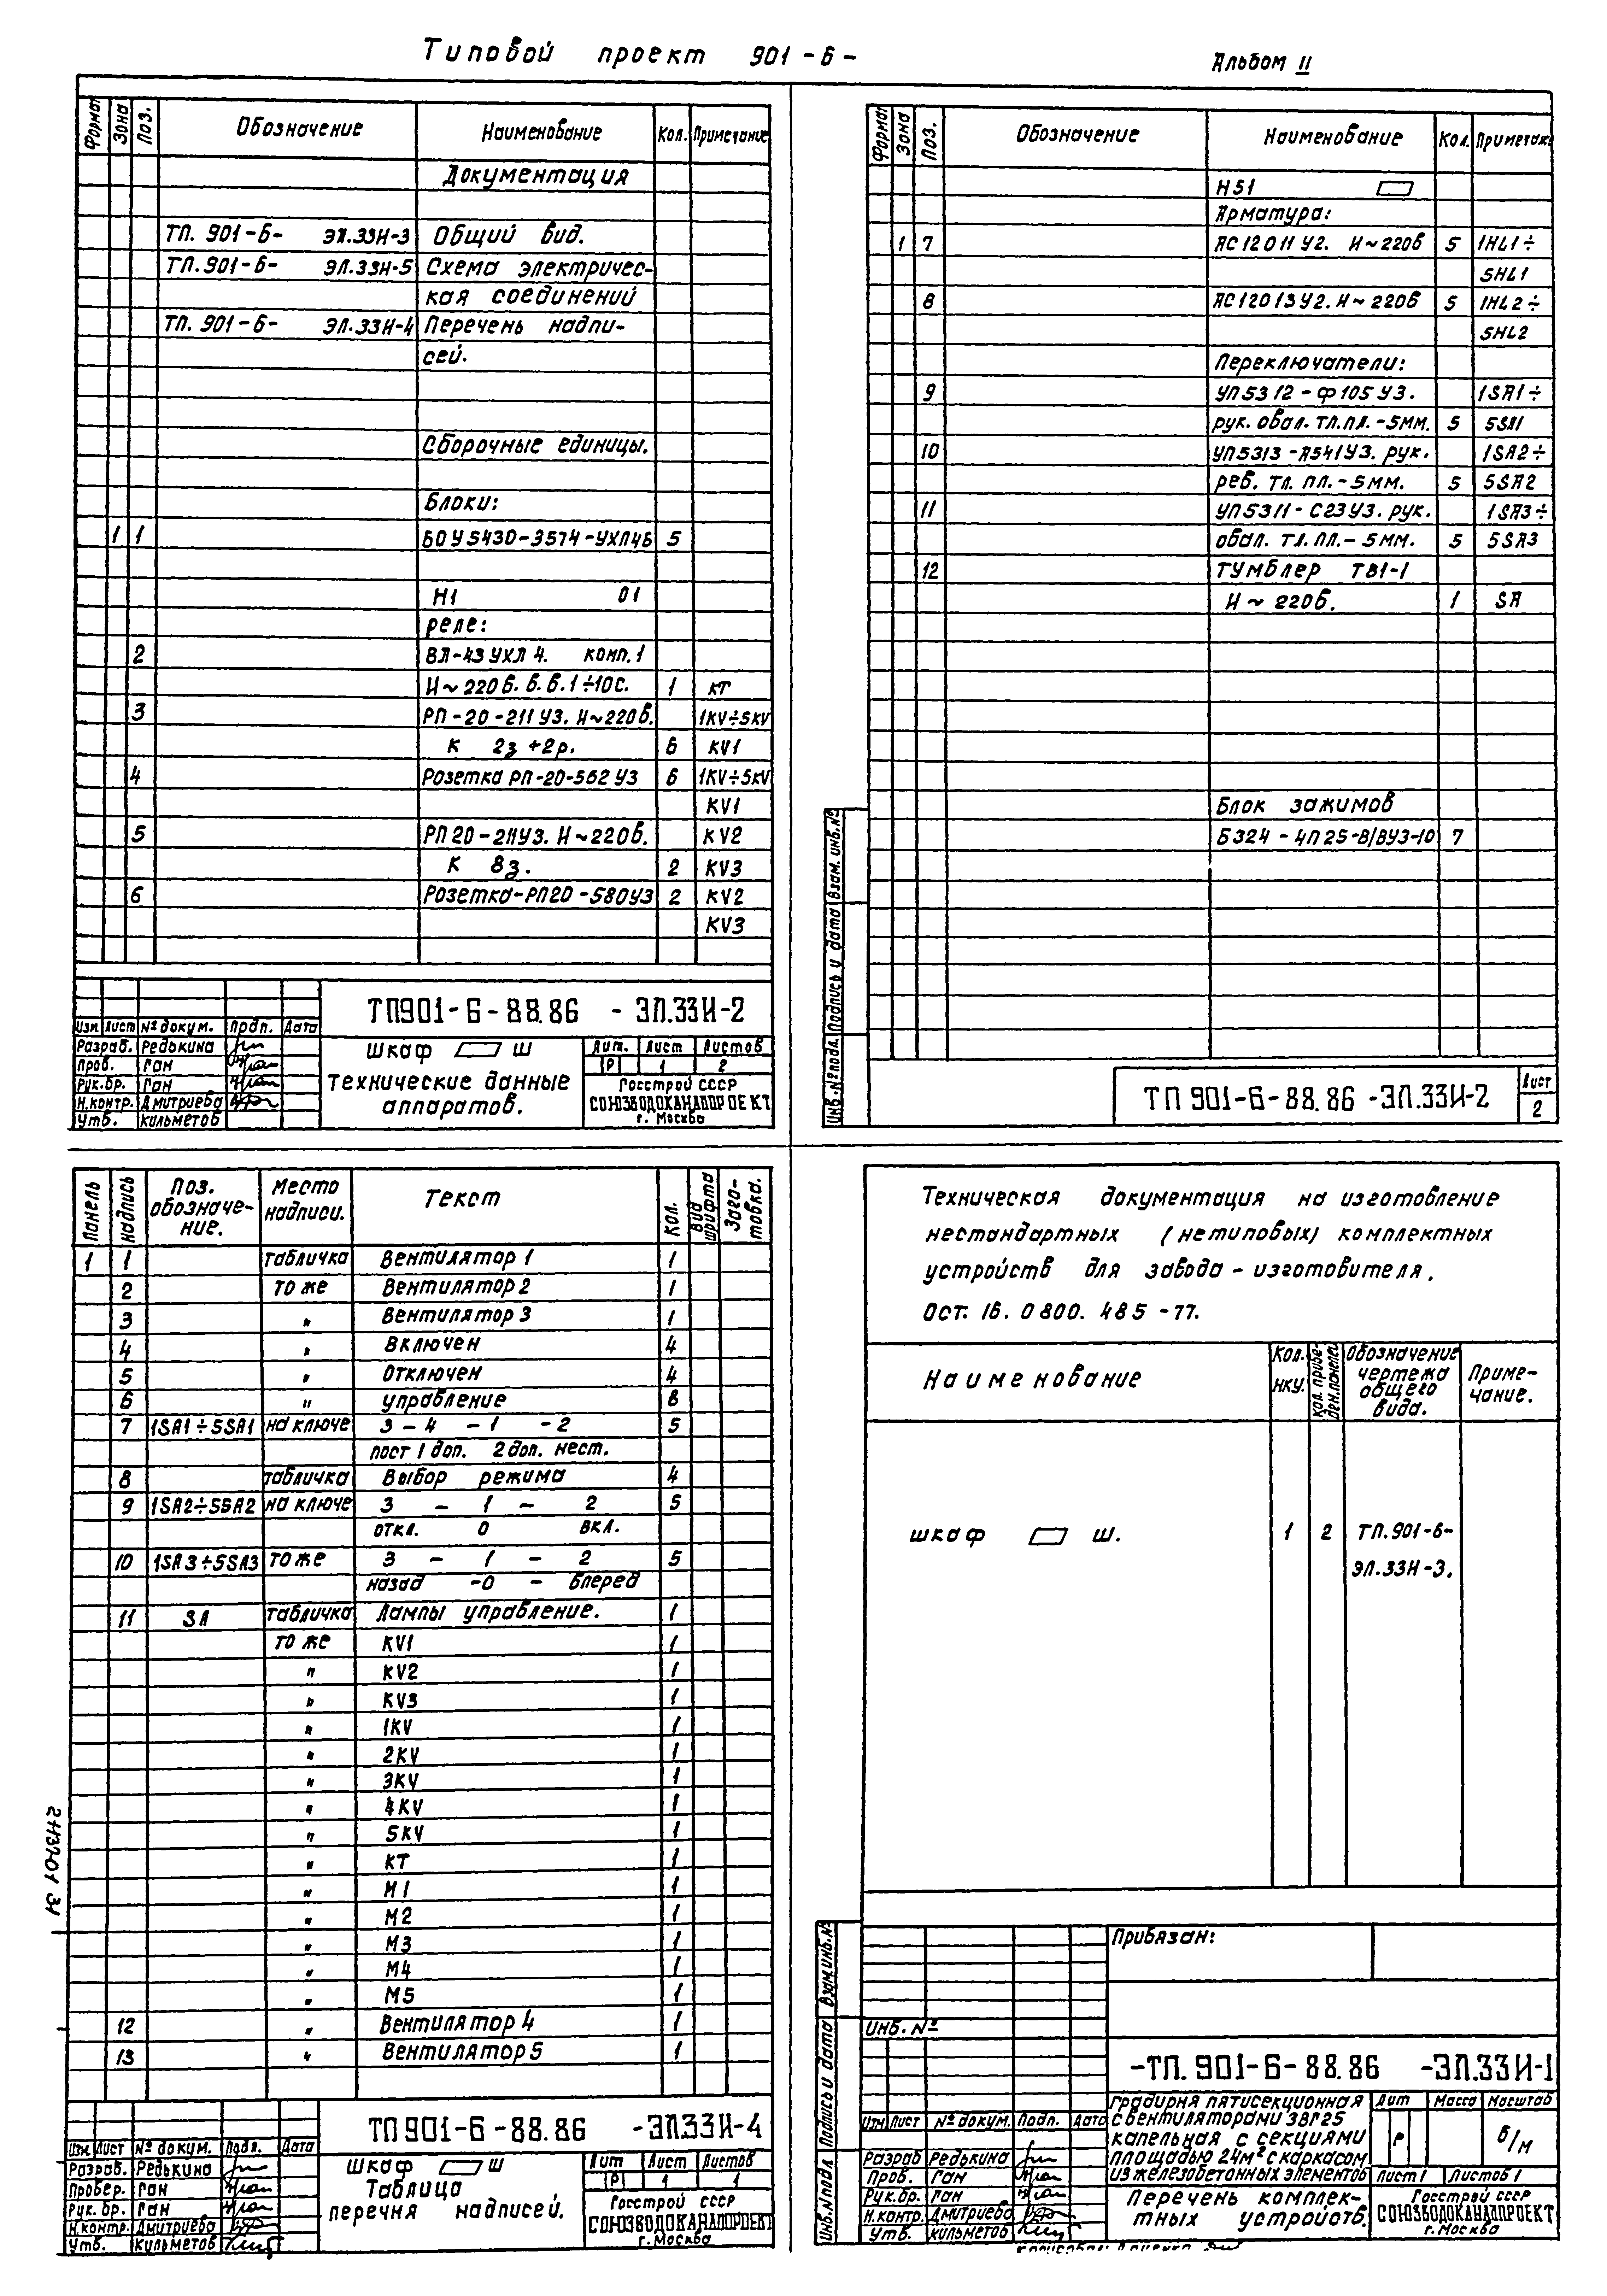 Типовой проект 901-6-
Альбом II
Формат Зона Поз. Обозначение Наименование Кол. Примечание
Документация
ТП. 901-6- ЭЛ.33И-3 Общий вид.
ТП. 901-6- ЭЛ.33И-5 Схема электричес-
кая соединений
ТП. 901-6- ЭЛ.33И-4 Перечень надпи-
сей.
Сборочные единицы.
Блоки:
1 1 БОУ5430-3574-УХЛ4Б 5
Н1 01
реле:
2 ВЛ-43 УХЛ 4. комп. 1
И ~ 220 в. в. в. 1÷10с. 1 КТ
3 РП-20-211 У3. И~220в. 1KV÷5KV
К 2з+2р. 6 KV1
4 Розетка РП-20-562 У3 6 1KV÷5KV
KV1
5 РП20-211У3. И~220в. KV2
К 8з. 2 KV3
6 Розетка-РП20-580У3 2 KV2
KV3
ТП901-6-88.86 -ЭЛ.33И-2
Изм Лист № докум. Подп. Дата
Разраб. Редькина
Пров. Ган
Рук.бр. Ган
Н.контр. Дмитриева
Утв. Кильметов
Шкаф Ш
Технические данные
аппаратов.
Лит. Лист Листов
Р 1 2
Госстрой СССР
СОЮЗВОДОКАНАЛПРОЕКТ
г. Москва
Формат Зона Поз. Обозначение Наименование Кол. Примечан
Н51
Арматура:
1 7 АС12011 У2. И~220в 5 1HL1÷
5HL1
8 АС12013У2. И~220в 5 1HL2÷
5HL2
Переключатели:
9 УП5312-Ф105 У3. 1SA1÷
рук. овал. тл.пл.-5мм. 5 5SA1
10 УП5313-А541У3. рук. 1SA2÷
рев. тл. пл.-5мм. 5 5SA2
11 УП5311-С23У3. рук. 1SA3÷
овал. тл. пл.-5мм. 5 5SA3
12 Тумблер ТВ1-1
И ~ 220в. 1 SA
Блок зажимов
Б324-4П25-В/ВУ3-10 7
Инв.№подл. Подпись и дата Взам. инв.№
ТП 901-6-88.86 -ЭЛ.33И-2
Лист
2
Панель Надпись Поз. обозначе-ние. Место надписи. Текст Кол. Вид шрифта Заго-товка.
1 1 табличка Вентилятор 1 1
2 то же Вентилятор 2 1
3 " Вентилятор 3 1
4 " Включен 4
5 " Отключен 4
6 " управление 8
7 1SA1÷5SA1 на ключе 3-4 -1 -2 5
пост 1 доп. 2 доп. нест.
8 табличка Выбор режима 4
9 1SA2÷5SA2 на ключе 3 - 1 - 2 5
откл. 0 вкл.
10 1SA3÷5SA3 то же 3 - 1 - 2 5
назад -0 - вперед
11 SA табличка Лампы управление. 1
то же KV1 1
" KV2 1
" KV3 1
" 1KV 1
" 2KV 1
" 3KV 1
" 4KV 1
" 5KV 1
" КТ 1
" М1 1
" М2 1
" М3 1
" М4 1
" М5 1
12 " Вентилятор 4 1
13 " Вентилятор 5 1
ТП901-6-88.86 -ЭЛ.33И-4
Изм. Лист № докум. Подп. Дата
Разраб. Редькина
Провер. Ган
Рук. бр. Ган
Н.контр. Дмитриева
Утв. Кильметов
Шкаф Ш
Таблица
перечня надписей.
Лит Лист Листов
Р 1 1
Госстрой СССР
СОЮЗВОДОКАНАЛПРОЕКТ
г. Москва
Техническая документация на изготовление
нестандартных (нетиповых) комплектных
устройств для завода-изготовителя.
Ост. 16. 0800. 485-77.
Наименование Кол. НКУ. Кол. приве-ден. панелей Обозначение чертежа общего вида. Приме-чание.
шкаф Ш. 1 2 ТП.901-6-
ЭЛ.33И-3.
Привязан:
Инв. №
Инв.№подл Подпись и дата Взам.инв.№
-ТП. 901-6-88.86 -ЭЛ.33И-1
Изм Лист № докум. Подп. Дата
Разраб Редькина
Пров. Ган
Рук.бр. Ган
Н.контр. Дмитриева
Утв. Кильметов
градирня пятисекционная
с вентиляторами 3ВГ25
капельная с секциями
площадью 24м² с каркасом
из железобетонных элементов
Лит Масса Масштаб
Р б/м
Лист 1 Листов 1
Перечень комплек-
тных устройств.
Госстрой СССР
СОЮЗВОДОКАНАЛПРОЕКТ
г. Москва